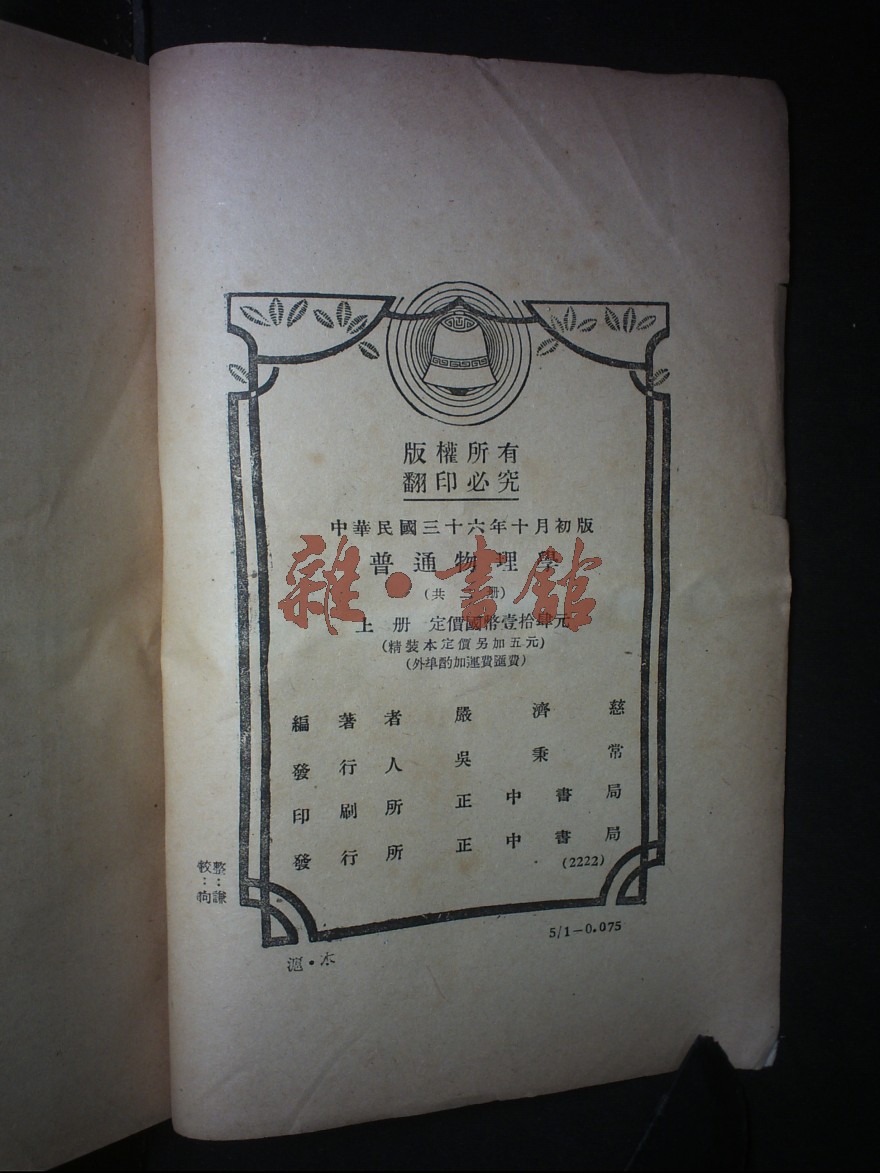 版權所有
翻印必究
中華民國三十六年十月初版
普通物理學
(共二册)
上册 定價國幣壹拾肆元
(精裝本定價另加五元)
(外埠酌加運費匯費)
編著者 嚴濟慈
發行人 吳秉常
印刷所 正中書局
發行所 正中書局
(2222)
整:謙
校:
5/1-0.075
滬·本
雜·書館